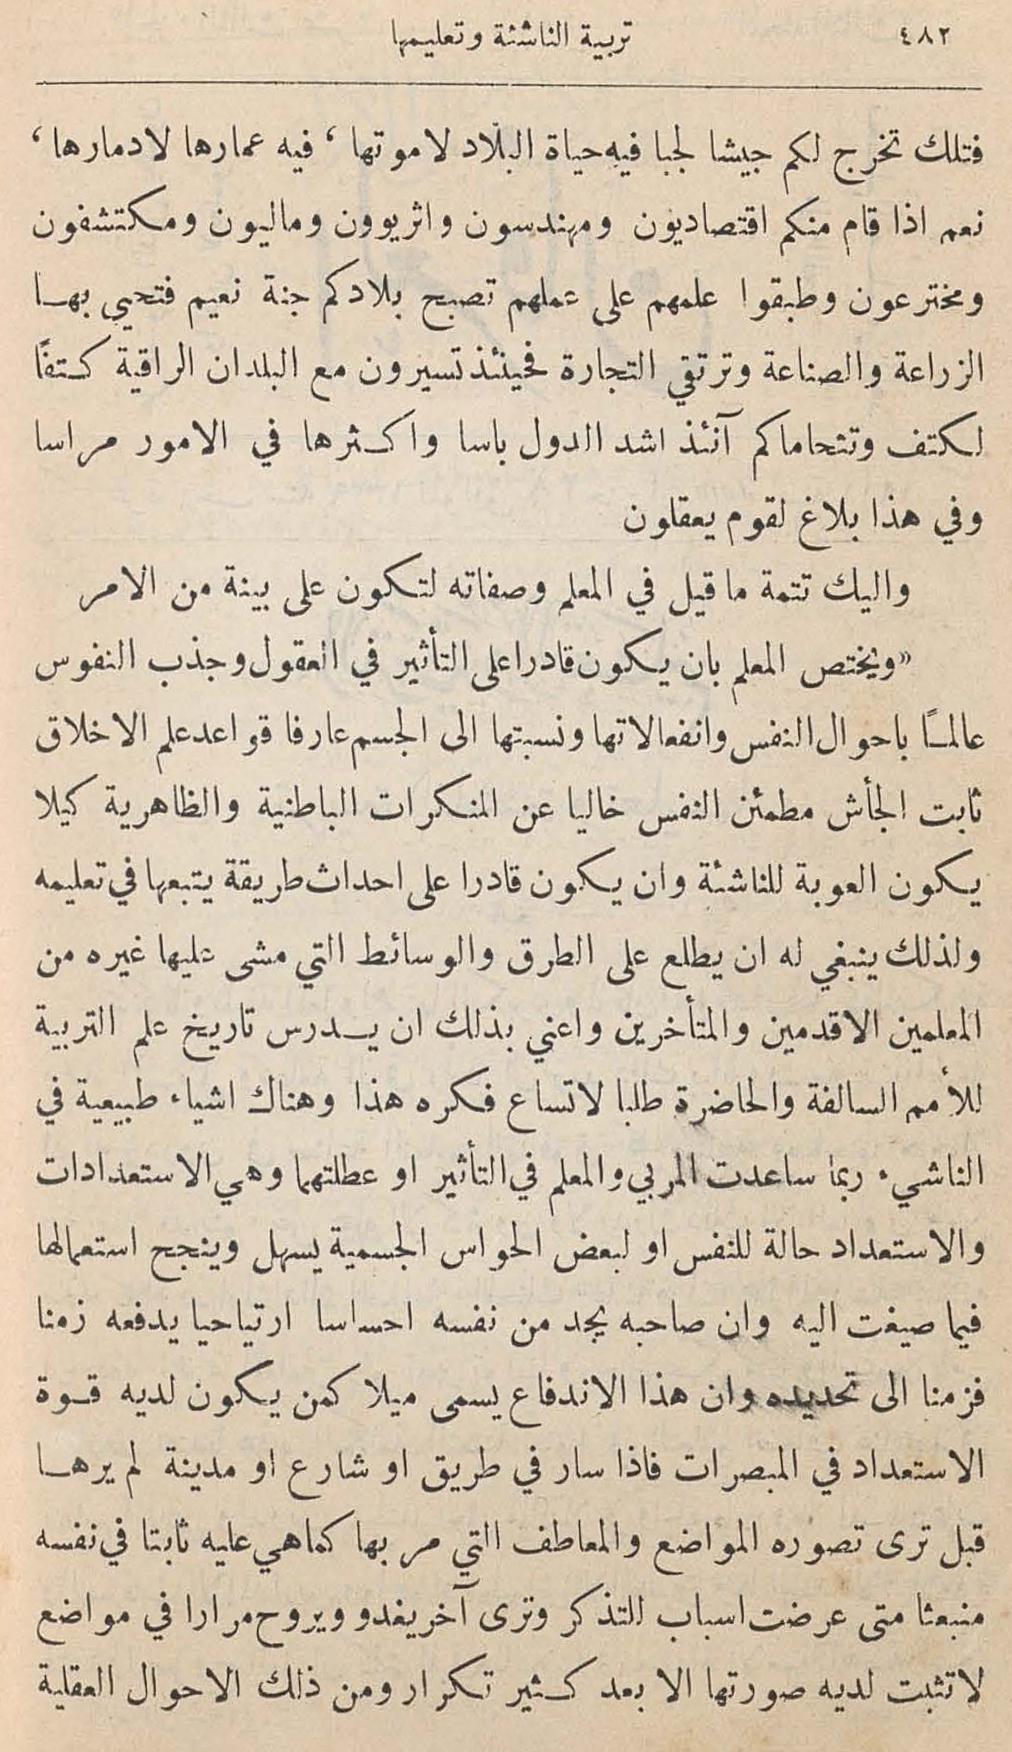 ٤٨٢
تربية الناشئة وتعليمها
فتلك تخرج لكم جيشا لجبا فيه حياة البلاد لا موتها ، فيه عمارها لا دمارها ،
نعم اذا قام منكم اقتصاديون ومهندسون واثريوون وماليون ومكتشفون
ومخترعون وطبقوا علمهم على عملهم تصبح بلادكم جنة نعيم فتحيى بها
الزراعة والصناعة وترتقي التجارة فحينئذ تسيرون مع البلدان الراقية كتفًا
لكتف وتتحاماكم آنئذ اشد الدول باسا واكثرها في الامور مراسا
وفي هذا بلاغ لقوم يعقلون
واليك تتمة ما قيل في المعلم وصفاته لتكون على بينة من الامر
« ويختص المعلم بان يكون قادرا على التأثير في العقول وجذب النفوس
عالمًا باحوال النفس وانفعالاتها ونسبتها الى الجسم عارفا قواعد علم الاخلاق
ثابت الجأش مطمئن النفس خاليا عن المنكرات الباطنية والظاهرية كيلا
يكون العوبة للناشئة وان يكون قادرا على احداث طريقة يتبعها في تعليمه
ولذلك ينبغي له ان يطلع على الطرق والوسائط التي مشى عليها غيره من
المعلمين الاقدمين والمتأخرين واعني بذلك ان يدرس تاريخ علم التربية
للأمم السالفة والحاضرة طلبا لاتساع فكره هذا وهناك اشياء طبيعية في
الناشيء ربما ساعدت المربي والمعلم في التأثير او عطلتهما وهي الاستعدادات
والاستعداد حالة للنفس او لبعض الحواس الجسمية يسهل وينجح استعمالها
فيما صيغت اليه وان صاحبه يجد من نفسه احساسا ارتياحيا يدفعه زمنا
فزمنا الى تحديده وان هذا الاندفاع يسمى ميلا كمن يكون لديه قوة
الاستعداد في المبصرات فاذا سار في طريق او شارع او مدينة لم يرها
قبل ترى تصوره المواضع والمعاطف التي مر بها كما هي عليه ثابتا في نفسه
منبعثا متى عرضت اسباب للتذكر وترى آخر يغدو ويروح مرارا في مواضع
لا تثبت لديه صورتها الا بعد كثير تكرار ومن ذلك الاحوال العقلية